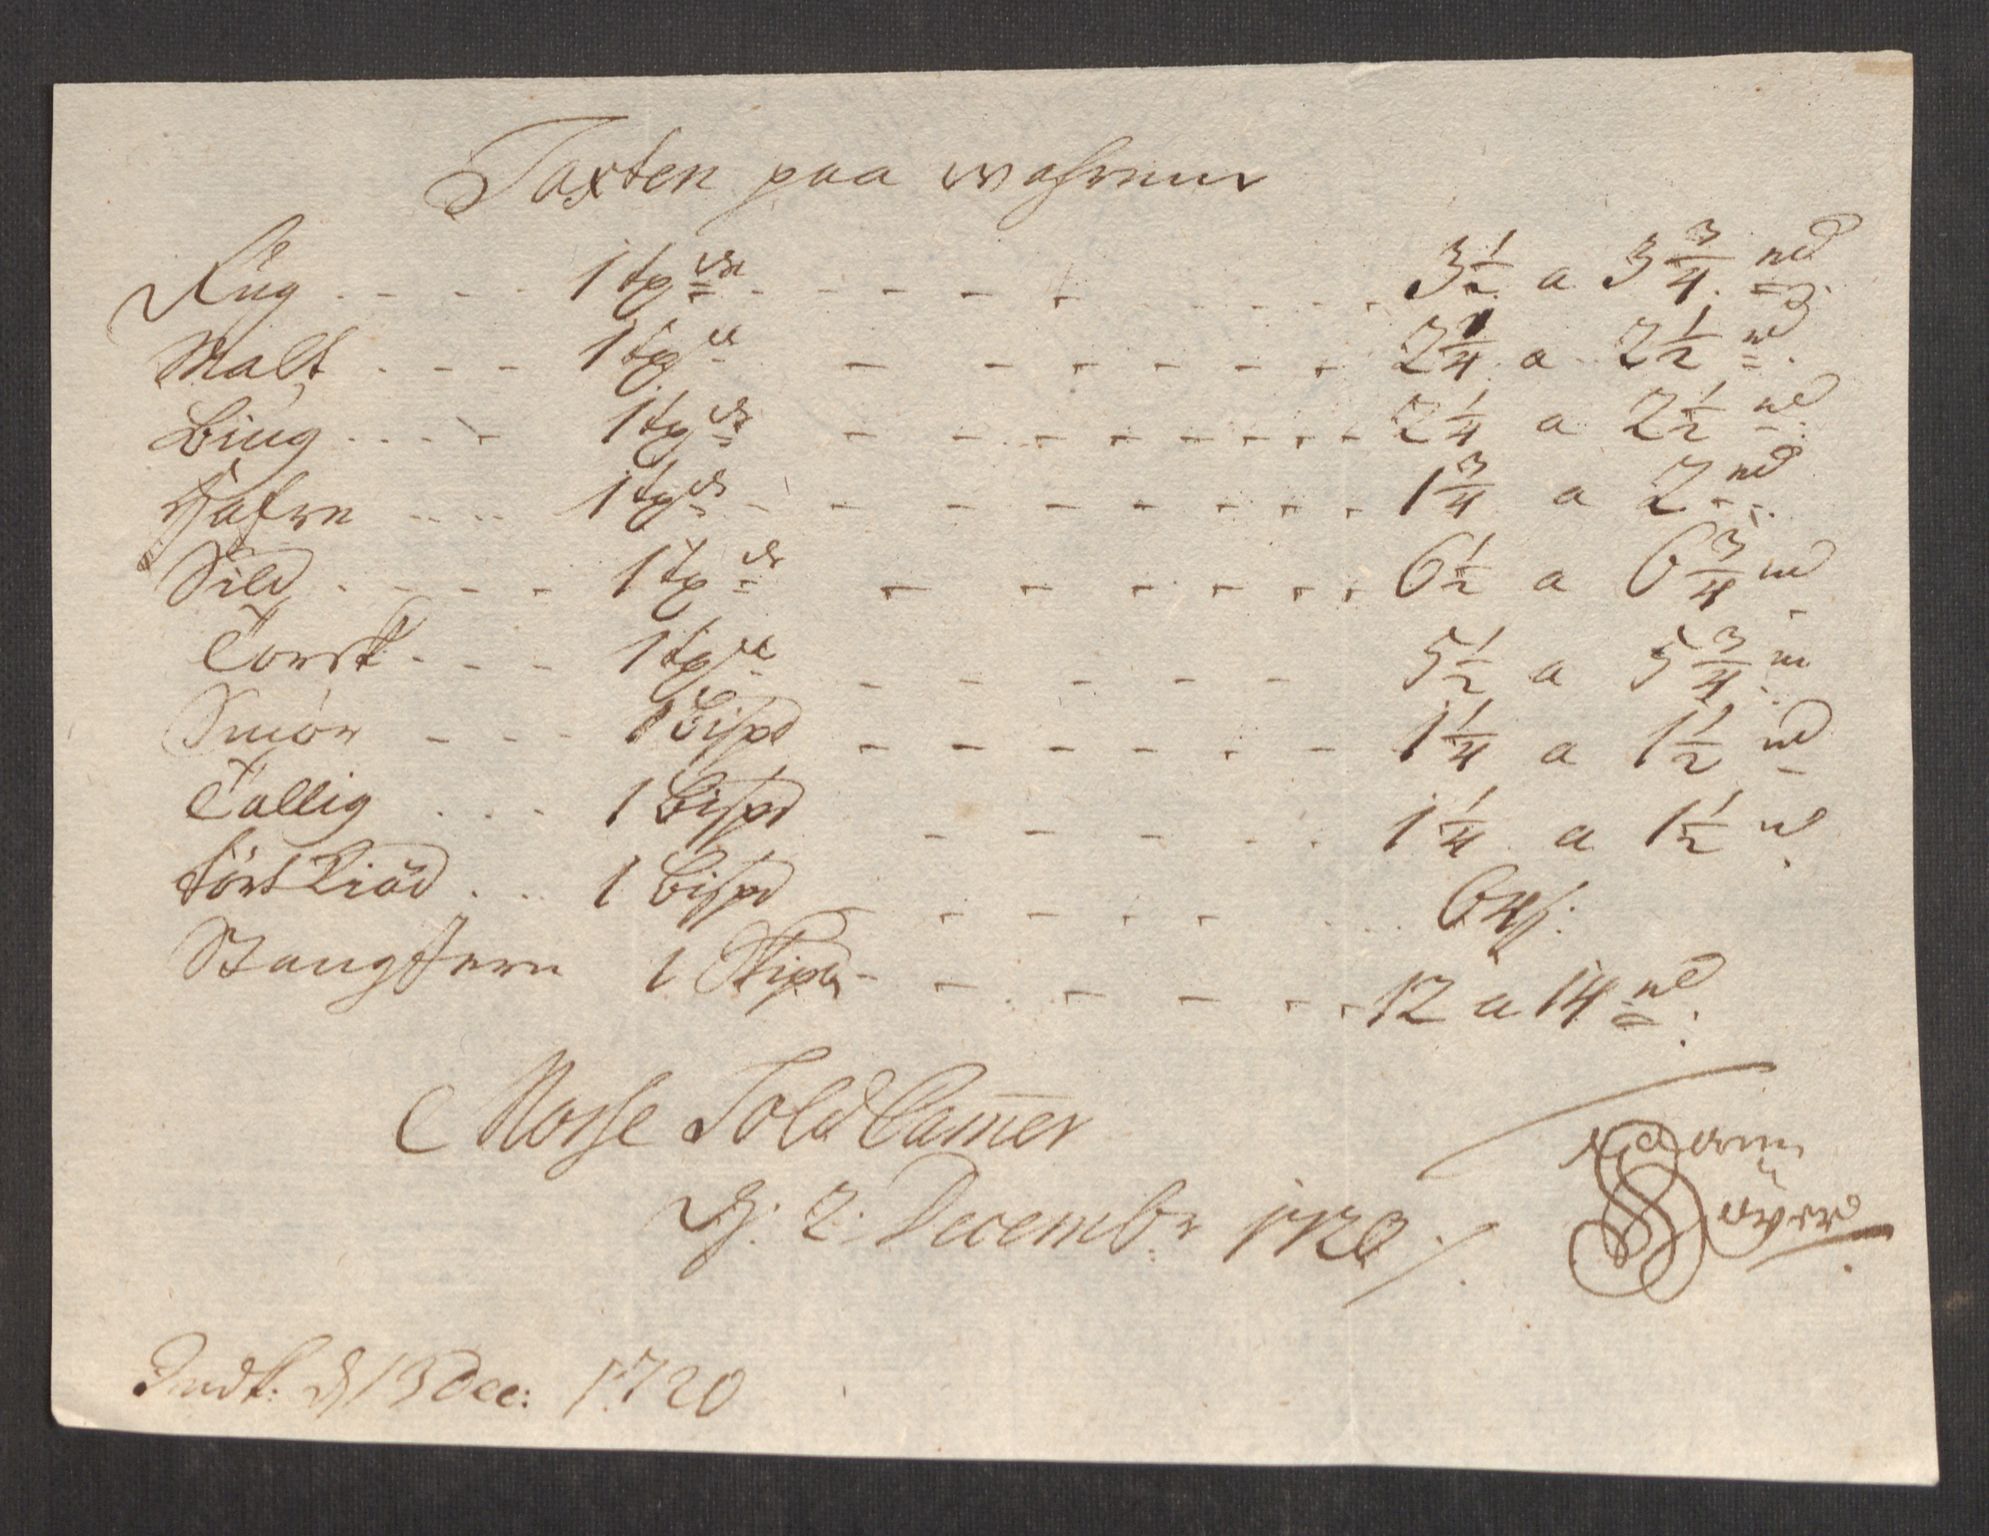 Taxten paa wahrene
Rug .... 1 tø ... 3 1/2 a 3 3/4 rd
Malt ... 1 tø ... 2 1/4 a 2 1/2 rd
Biug .... 1 tø ... 2 1/4 a 2 1/2 rd
Hafre .... 1 tø ... 1 3/4 a 2 rd
Sild .... 1 tø ... 6 1/2 a 6 3/4 rd
Torsk ... 1 tø ... 5 1/2 a 5 3/4 rd
Smör ... 1 Bispd ... 1 1/4 a 1 1/2 rd
Tallig ... 1 Bispd ... 1 1/4 a 1 1/2 rd
tört Kiöd ... 1 bispd ... 6
Stang Jern 1 Skipd ... 12 a 14 rd
Mosse Told Camer
d: 2: Decembr 1720
Indk: d 13 Dec: 1720